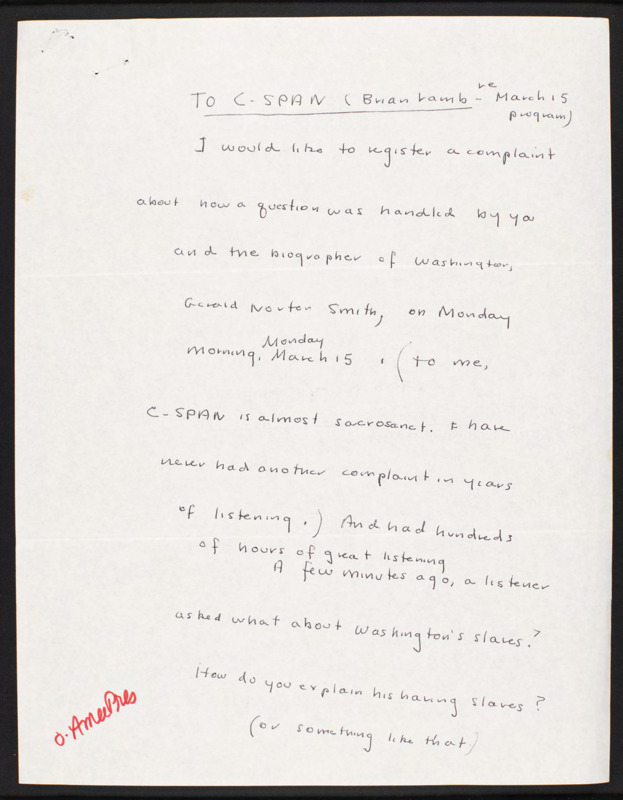 TO C-SPAN (Brian Lamb - re March 15
program)
I would like to register a complaint
about how a question was handled by yo
and the biographer of Washington,
Gerald Norton Smith, on Monday
morning, Monday March 15. (to me,
C-SPAN is almost sacrosanct. I have
never had another complaint in years
of listening.) And had hundreds
of hours of great listening
A few minutes ago, a listener
asked what about Washington's slaves?
How do you explain his having slaves?
(or something like that)
O. AmerPres